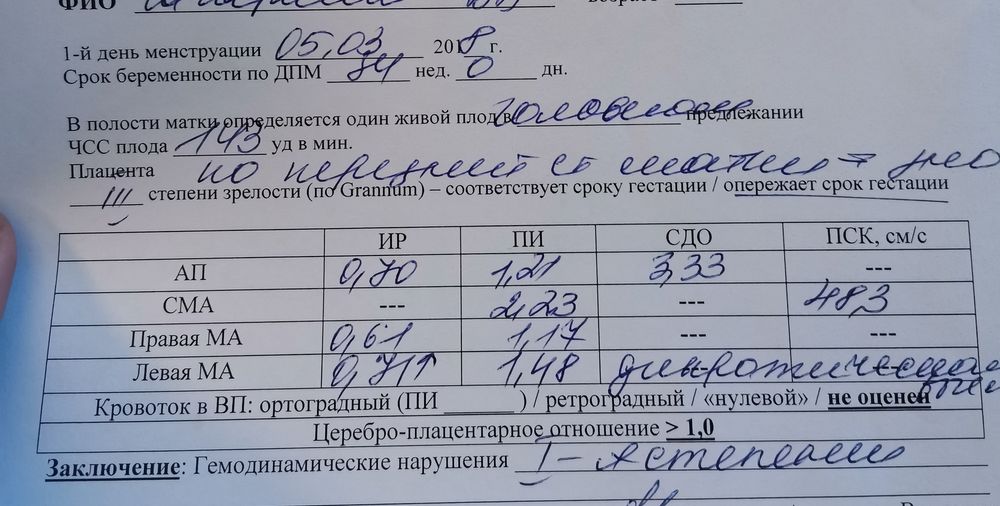 ФИО
1-й день менструации 05,03 2018 г.
Срок беременности по ДПМ 34 нед. 0 дн.
В полости матки определяется один живой плод в головном предлежании
ЧСС плода 143 уд в мин.
Плацента по передней ст матки
III степени зрелости (по Grannum) – соответствует сроку гестации / опережает срок гестации
ИР ПИ СДО ПСК, см/с
АП 0,70 1,21 3,33 ---
СМА --- 2,23 --- 48,3
Правая МА 0,61 1,17 --- ---
Левая МА 0,71↑ 1,48 дикротическая
Кровоток в ВП: ортоградный (ПИ ______ ) / ретроградный / «нулевой» / не оценен
Церебро-плацентарное отношение > 1,0
Заключение: Гемодинамические нарушения I-А степени